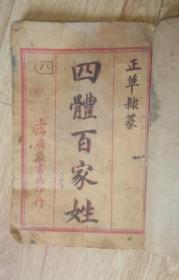 正草隸篆
四體百家姓
上海廣益書局印行
八